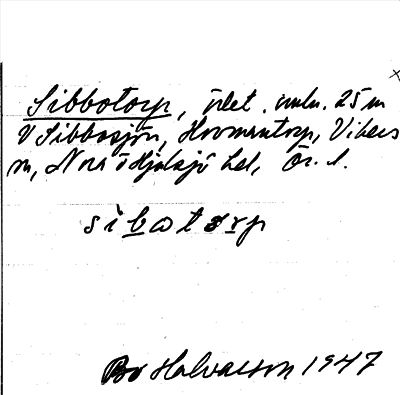 Sibbotorp, ödet. 25 m
V Sibbosjön, Hovmantorp, Vikers
sn, Nora o Hjulsjö hd, Ör. l.
sibωtɔrp
Bo Halvarson 1947